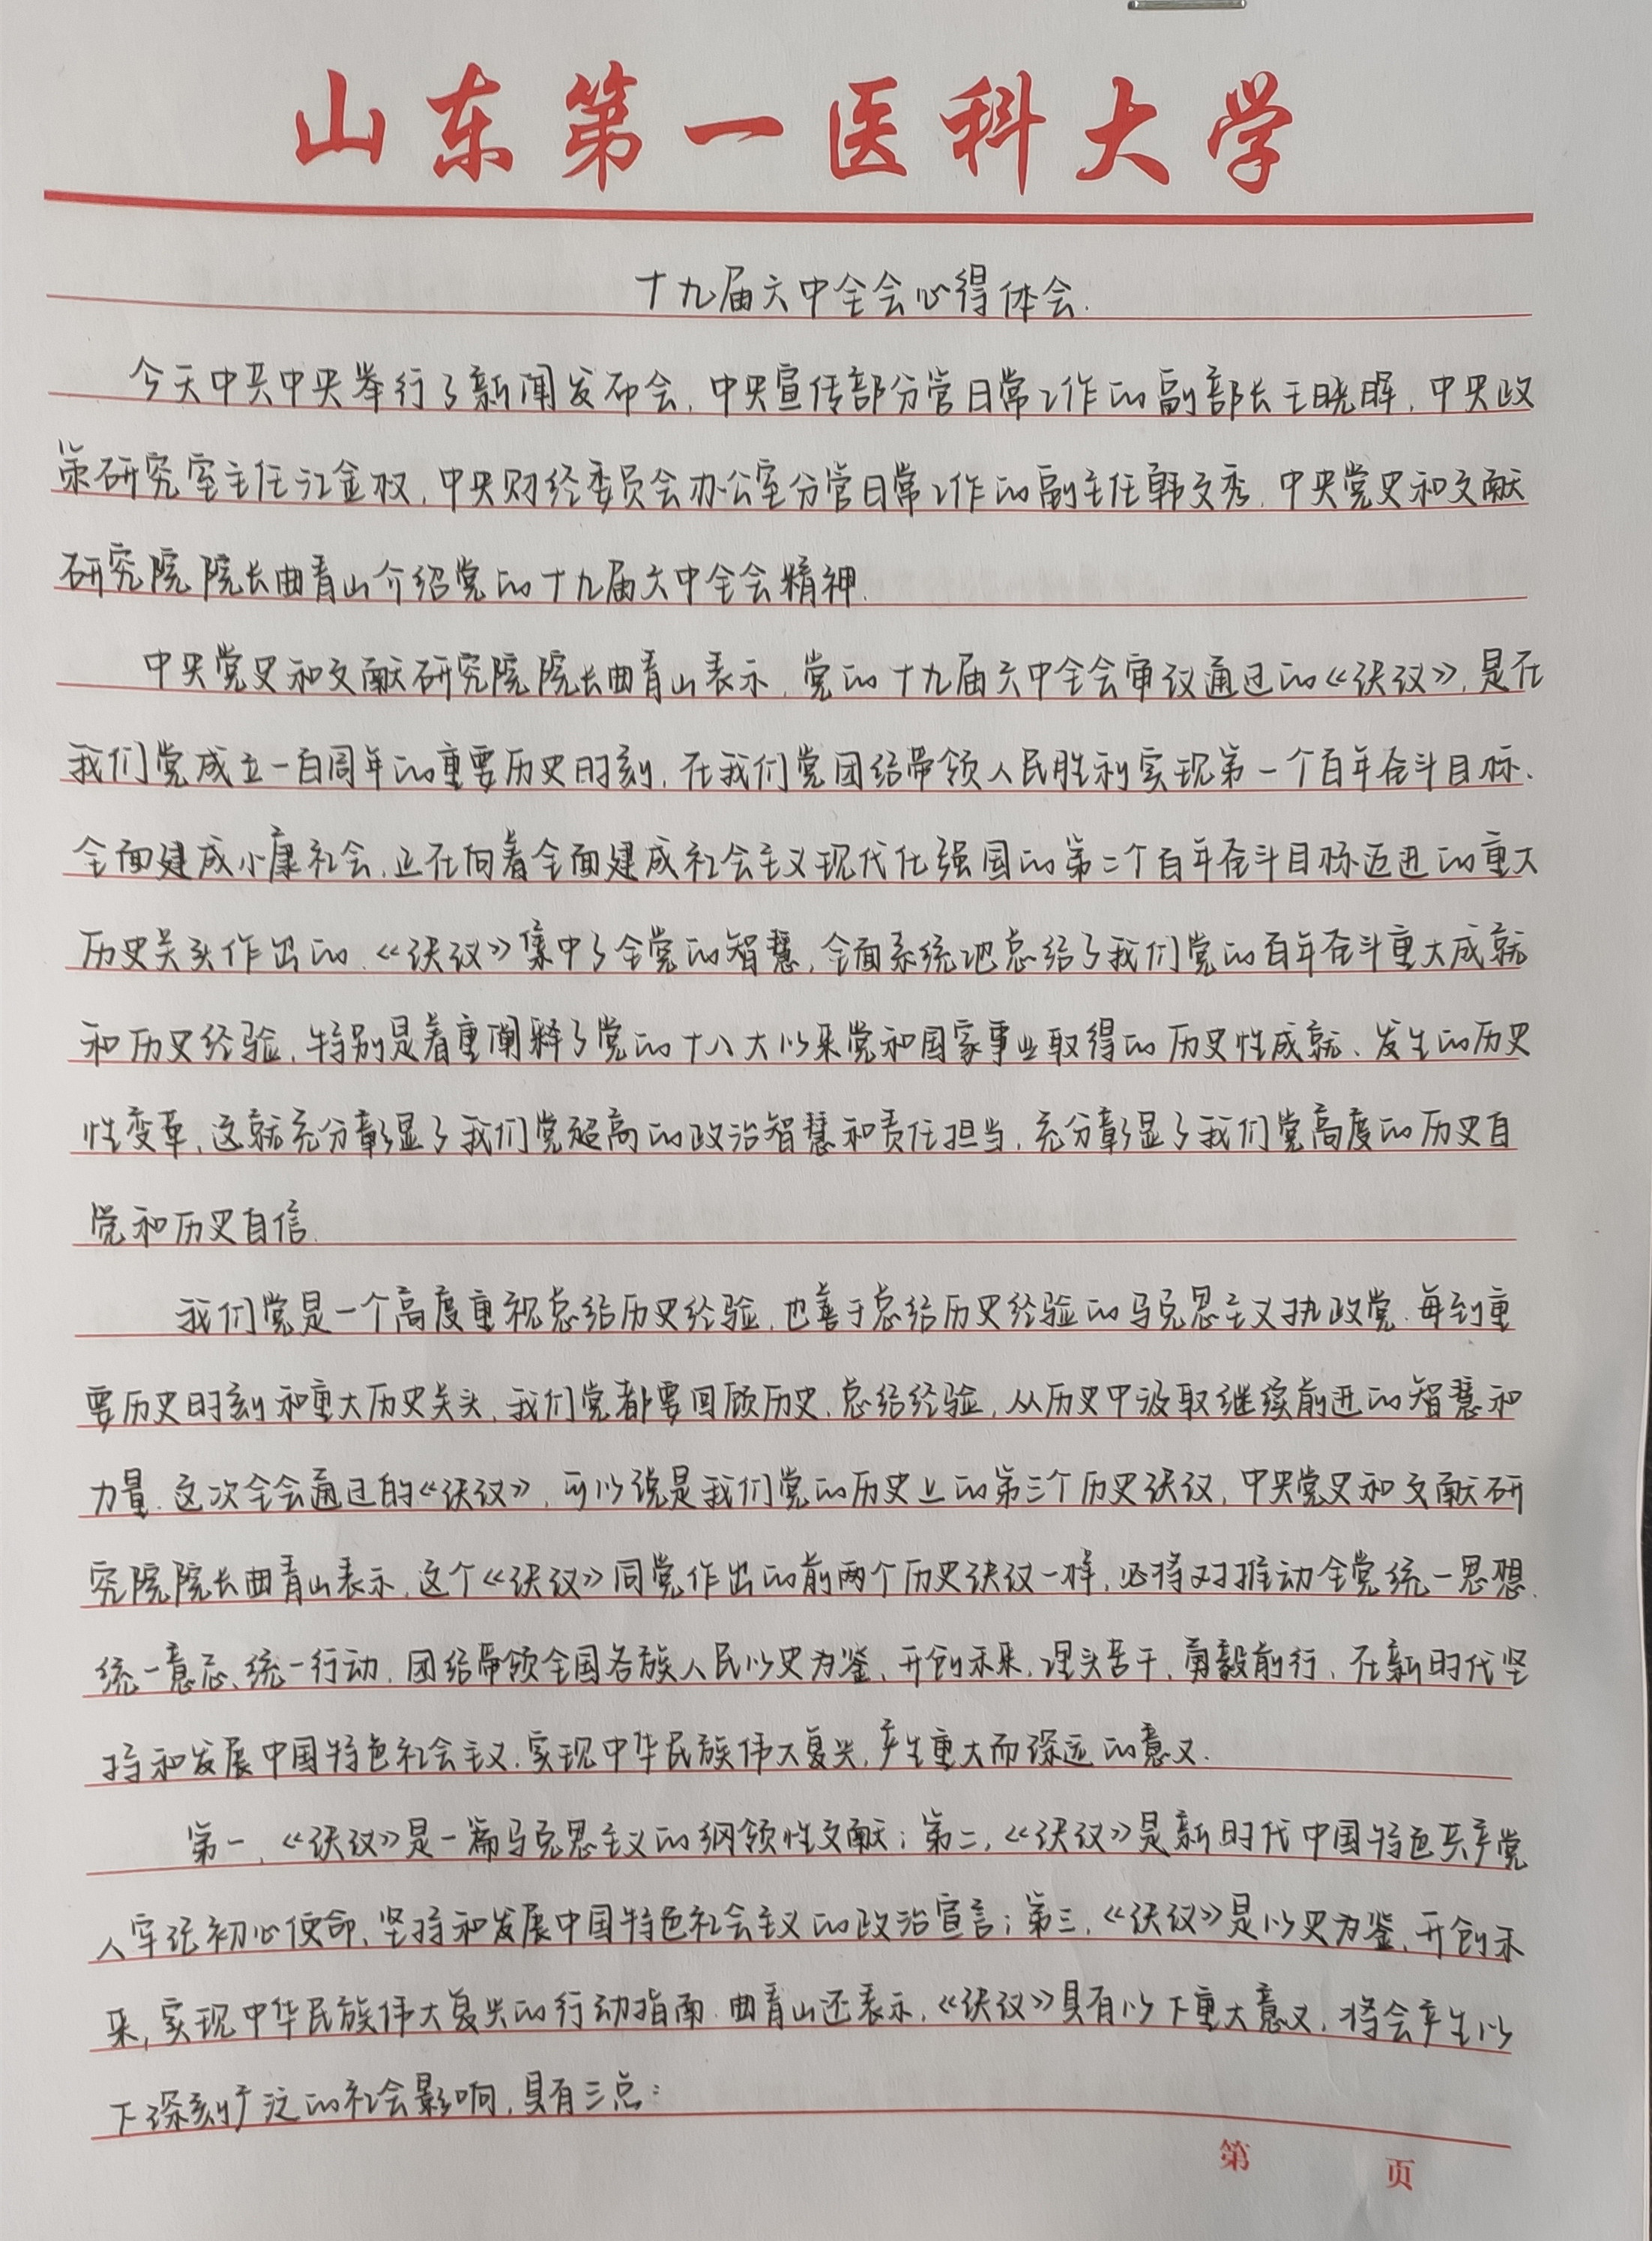 山东第一医科大学
十九届六中全会心得体会.
今天中共中央举行了新闻发布会,中央宣传部分管日常工作的副部长王晓晖,中央政
策研究室主任江金权,中央财经委员会办公室分管日常工作的副主任韩文秀,中央党史和文献
研究院院长曲青山介绍党的十九届六中全会精神.
中央党史和文献研究院院长曲青山表示,党的十九届六中全会审议通过的《决议》,是在
我们党成立一百周年的重要历史时刻,在我们党团结带领人民胜利实现第一个百年奋斗目标、
全面建成小康社会,正在向着全面建成社会主义现代化强国的第二个百年奋斗目标迈进的重大
历史关头作出的.《决议》集中了全党的智慧,全面系统地总结了我们党的百年奋斗重大成就
和历史经验,特别是着重阐释了党的十八大以来党和国家事业取得的历史性成就、发生的历史
性变革,这就充分彰显了我们党超高的政治智慧和责任担当,充分彰显了我们党高度的历史自
觉和历史自信.
我们党是一个高度重视总结历史经验,也善于总结历史经验的马克思主义执政党.每到重
要历史时刻和重大历史关头,我们党都要回顾历史,总结经验,从历史中汲取继续前进的智慧和
力量.这次全会通过的《决议》,可以说是我们党的历史上的第三个历史决议,中央党史和文献研
究院院长曲青山表示,这个《决议》同党作出的前两个历史决议一样,必将对推动全党统一思想、
统一意志、统一行动,团结带领全国各族人民以史为鉴、开创未来,埋头苦干,勇毅前行,在新时代坚
持和发展中国特色社会主义,实现中华民族伟大复兴,产生重大而深远的意义.
第一,《决议》是一篇马克思主义的纲领性文献;第二,《决议》是新时代中国特色共产党
人牢记初心使命、坚持和发展中国特色社会主义的政治宣言;第三,《决议》是以史为鉴,开创未
来,实现中华民族伟大复兴的行动指南.曲青山还表示,《决议》具有以下重大意义,将会产生以
下深刻广泛的社会影响,具有三点:
第 页